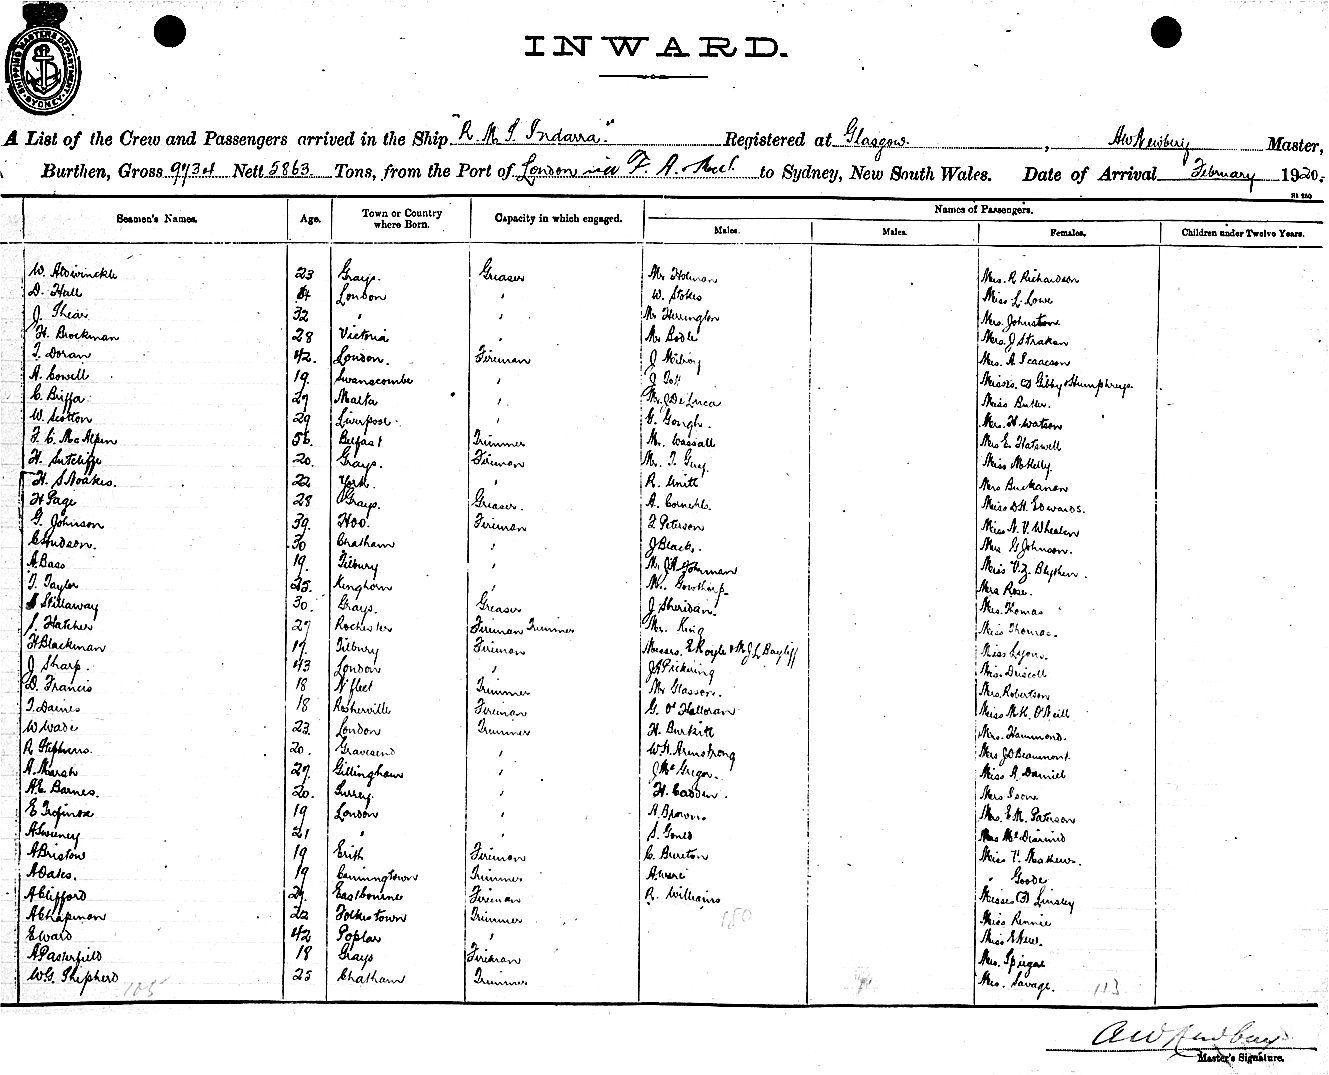 SHIPPING MASTERS DEPARTMENT SYDNEY
INWARD.
A List of the Crew and Passengers arrived in the Ship "R. M. S. Indarra." Registered at Glasgow. , AW Newbury Master,
Burthen, Gross 9734 Nett 5863 Tons, from the Port of London via to Sydney, New South Wales. Date of Arrival February 1920.
Names of Passengers.
Seamen's Names. Age. Town or Country where Born. Capacity in which engaged. Males. Males. Females. Children under Twelve Years.
W. Aldwinckle 23 Grays. Greaser Mr Holman Mrs. R Richardson
D. Hall London " W. Stokes Miss L. Lowe
J. Shear 32 " " Mr Herrington Mrs. Johnston
H. Brockman 28 Victoria " Mr Bodle Mrs. J Strakan
T. Doran 42. London. Fireman J Mrs. A Isaacson
A. Cowell 19. Swanscombe " J Misses. (2) Gibby & Humphreys.
C. Briffa 27 Malta " Mr. J De Luca Miss Butler.
W. Scotton 29 Liverpool " G. Gough. Mrs. H Watson
F. C. McAlpin 56. Belfast Trimmer Mr. Wassall Mrs E. Hatswell
H. Sutcliffe 20. Grays. Fireman Mr. T. Guy. Miss McKelly
H. S Noakes. 22 York. " R. Unitt Mrs Buckanan
H Page 28 Grays. Greaser. A. Miss D H. Edwards.
G. Johnson 39. Hoo. Fireman F Peterson Miss A. V. Whealen
C Hudson. 30 Chatham " J Black. Mrs G Johnson.
A. Bass 19. Tilbury " Miss V. Z. Blythen.
T. Taylor 25. Kinghorn " Gowthorp. Mrs Rose.
Stillaway 30. Grays. Greaser J Sheridan. Mrs. Thomas
J. Hatcher 27 Rochester Fireman Trimmer Mr. King Miss Thomas.
H Blackman 19. Tilbury Fireman Messrs. E Royle & M J L Bayliff Miss Lyons.
J Sharp. 43 London " J A Pickering Mrs. Driscoll
D. Francis 18 N'fleet Trimmer Mr Glasson. Mrs. Robertson
T. Daines 18 Rosherville Fireman G. O'Halloran Miss M K. O'Neill
W Wade 23. London Trimmer H. Burkitt Mrs. Hammond.
R Stephens. 20. Gravesend " W H. Armstrong Mrs J D Beaumont.
A. Marsh 27. Gillingham " J McGregor. Miss A. Daniell
A. E. Barnes. 20. Surrey. " H. Cadden. Mrs Ison
E 19 London " A Brown. Mrs. E M. Paterson
A Sweeney 21 " " S. Gould Mrs McDiarmid
A Briston 19 Erith Fireman C. Bureton Miss V. Mathews.
A Oates. 19 Canningtown Trimmer A Ware " Goode
A Clifford 24. Eastbourne Fireman R. Williams Misses (3) Linsley
A Chapman 22 Folkestown Trimmer 180 Miss Rennie
E Ward 42 Poplar " Miss E New.
A Pasterfield 18 Grays Fireman Mrs. Spiegal
W. G. Shepherd 25 Chatham Trimmer Mrs. Savage.
105 113
Master's Signature.